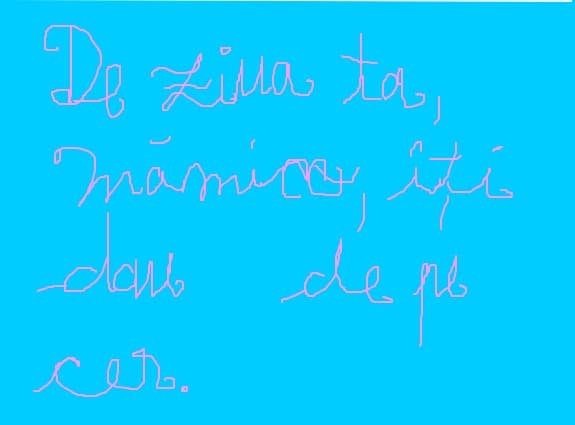 De ziua ta,
mămico, îți
dau de pe
cer.